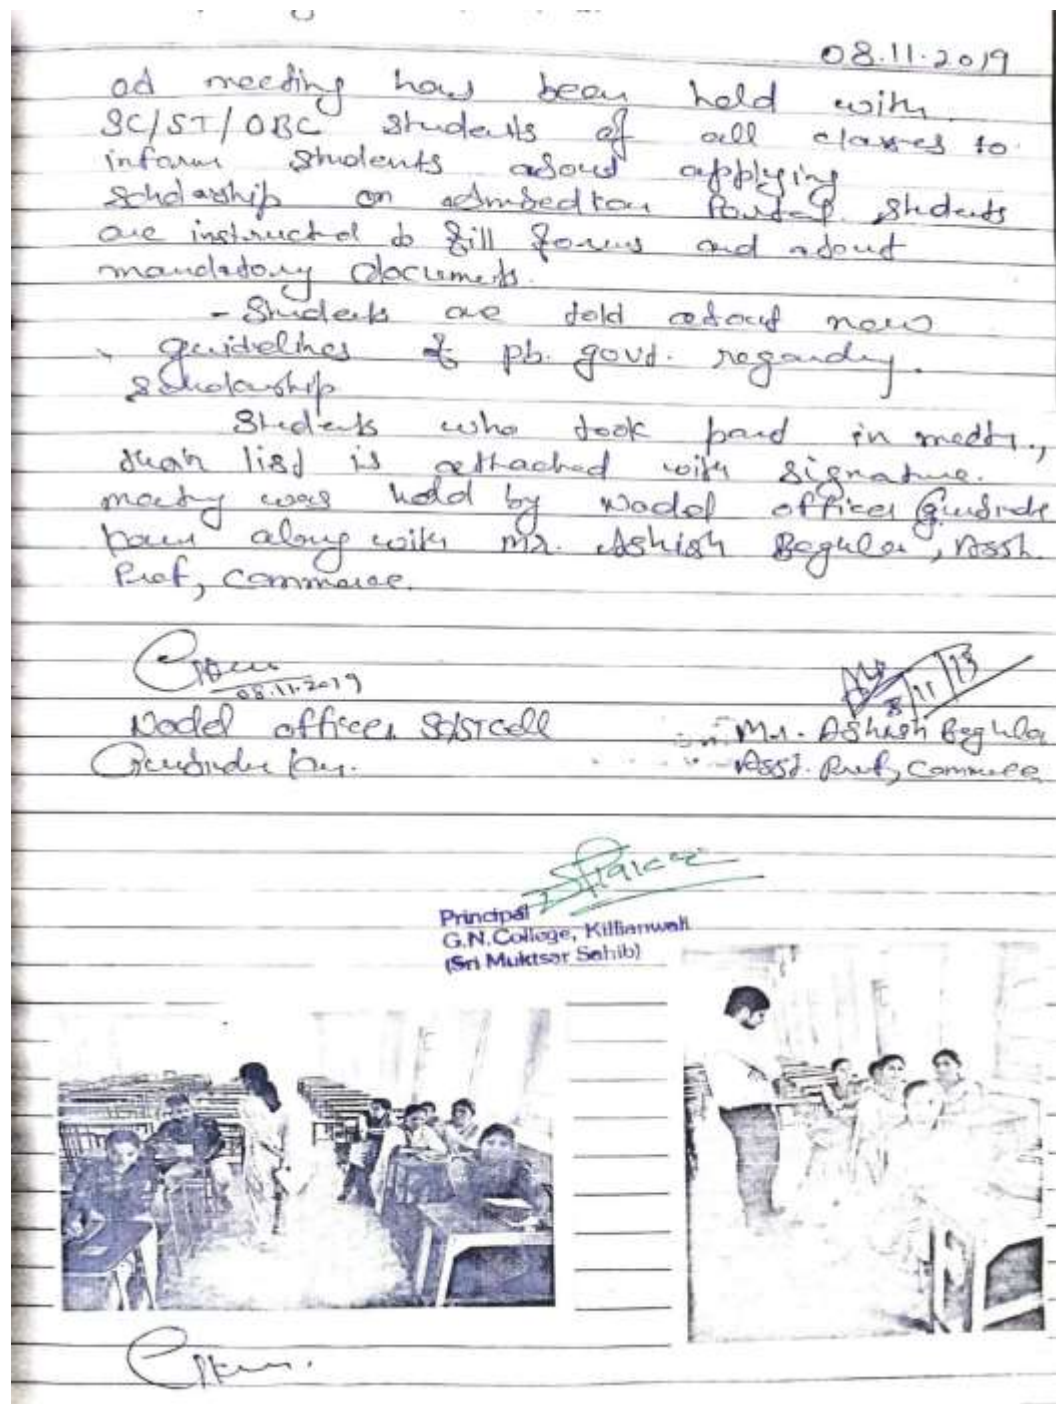 08.11.2019
ad meeting has been held with
SC/ST/OBC students of all classes to
inform students about applying
scholarship on portal. Students
are instructed to fill forms and about
mandatory documents.
- Students are told about new
guidelines of pb. govt. regarding
scholarship
Students who took part in
list is attached with signature.
meeting was held by Nodal officer
along with Mr. Ashish Baghla, Asst.
Prof, Commerce.
08.11.2019
8/11/19
Nodal officer SC/ST Cell
Mr. Ashish Baghla
Asst. Prof, Commerce
Principal
G.N.College, Killianwali
(Sri Muktsar Sahib)